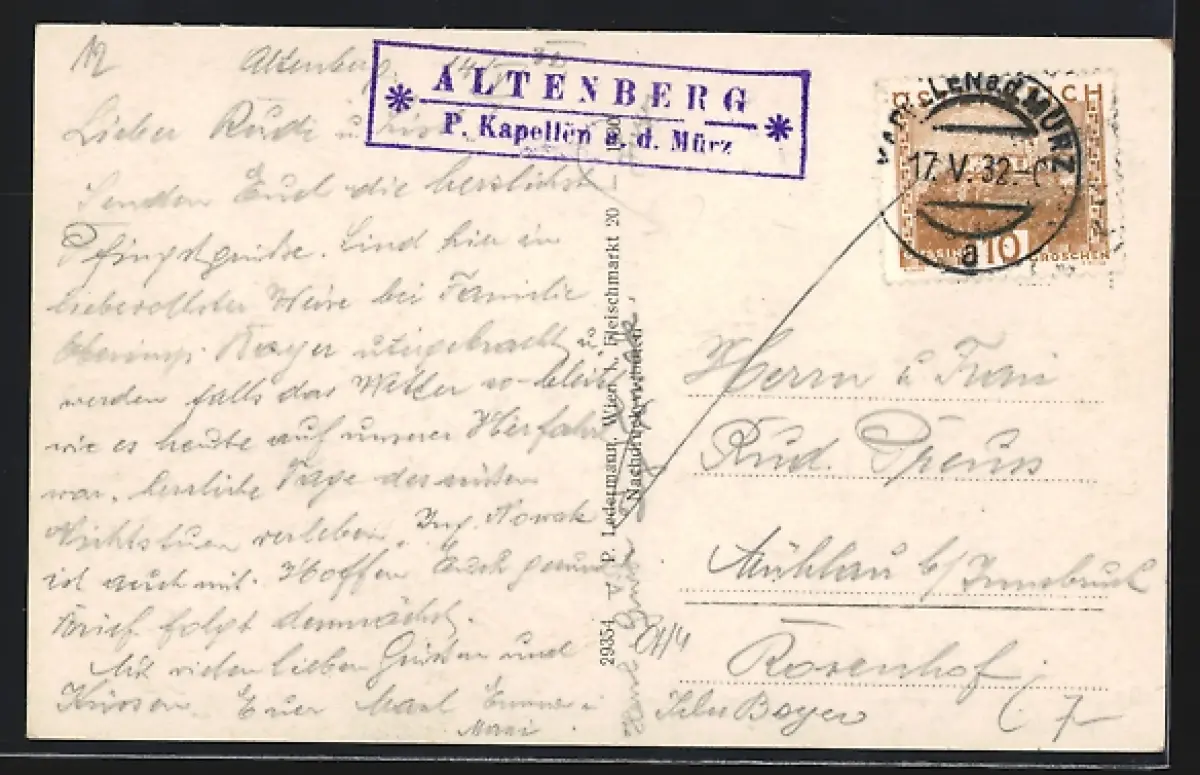 Altenberg, 14/V 32
ALTENBERG
P. Kapellen a. d. Mürz
Lieber Rudi u.
Senden Euch die herzlichst.
Pfingstgrüße. Sind hier in
liebevollster Weise bei Familie
Oberinsp. Bayer untergebracht u.
werden falls das Wetter so bleibt
wie es heute auf unserer Herfahrt
war, herrliche Tage des süßen
Nichtstuen verleben. Ing. Nowak
ist auch mit. Hoffen Euch gesund
Brief folgt demnächst.
Mit vielen lieben Grüßen und
Küssen Euer Emma u
29354 V. P. Ledermann, Wien I., Fleischmarkt 20
Nachdruck verboten
KAPELLEN a.d. MÜRZ
17. V. 32.
a
ÖSTERREICH
10
GROSCHEN
Herrn u Frau
Rud. Preuss
Mühlau b/Innsbruck
Rosenhof
Bayer